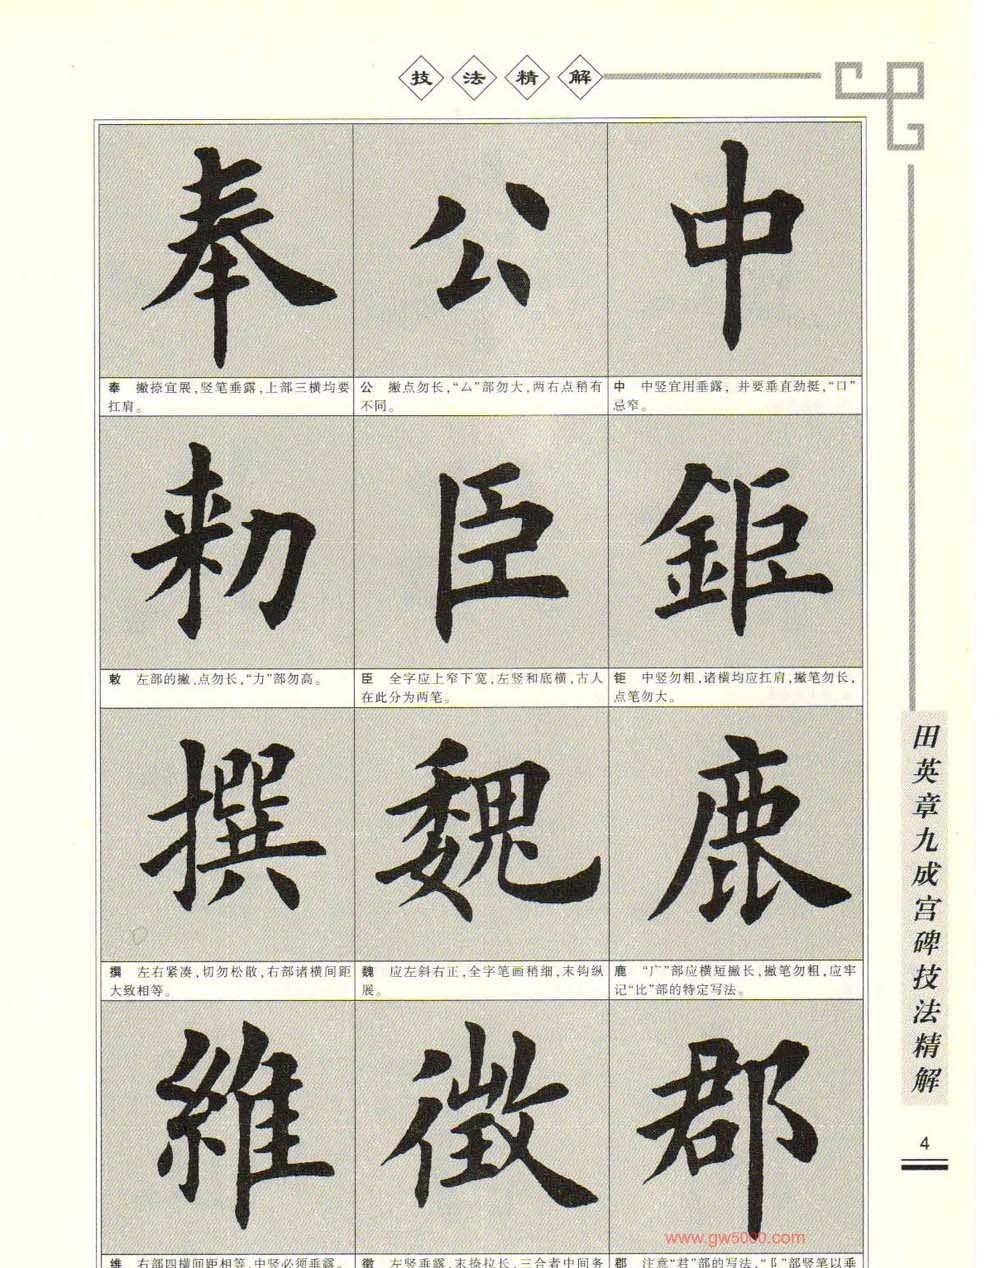 技法精解
奉 公 中
奉 撇捺宜展,竖笔垂露,上部三横均要
扛肩。
公 撇点勿长,“厶”部勿大,两右点稍有
不同。
中 中竖宜用垂露,并要垂直劲挺,“口”
忌窄。
勑 臣 鉅
敕 左部的撇、点勿长,“力”部勿高。
臣 全字应上窄下宽,左竖和底横,古人
在此分为两笔。
钜 中竖勿粗,诸横均应扛肩,撇笔勿长,
点笔勿大。
撰 魏 鹿
撰 左右紧凑,切勿松散,右部诸横间距
大致相等。
魏 应左斜右正,全字笔画稍细,末钩纵
展。
鹿 “广”部应横短撇长,撇笔勿粗,应牢
记“比”部的特定写法。
維 徵 郡
维 右部四横间距相等,中竖必须垂露。
徵 左竖垂露,末捺拉长,三合者中间务
郡 注意“君”部的写法,“阝”部竖笔以垂
田英章九成宫碑技法精解
4
www.gw5000.com